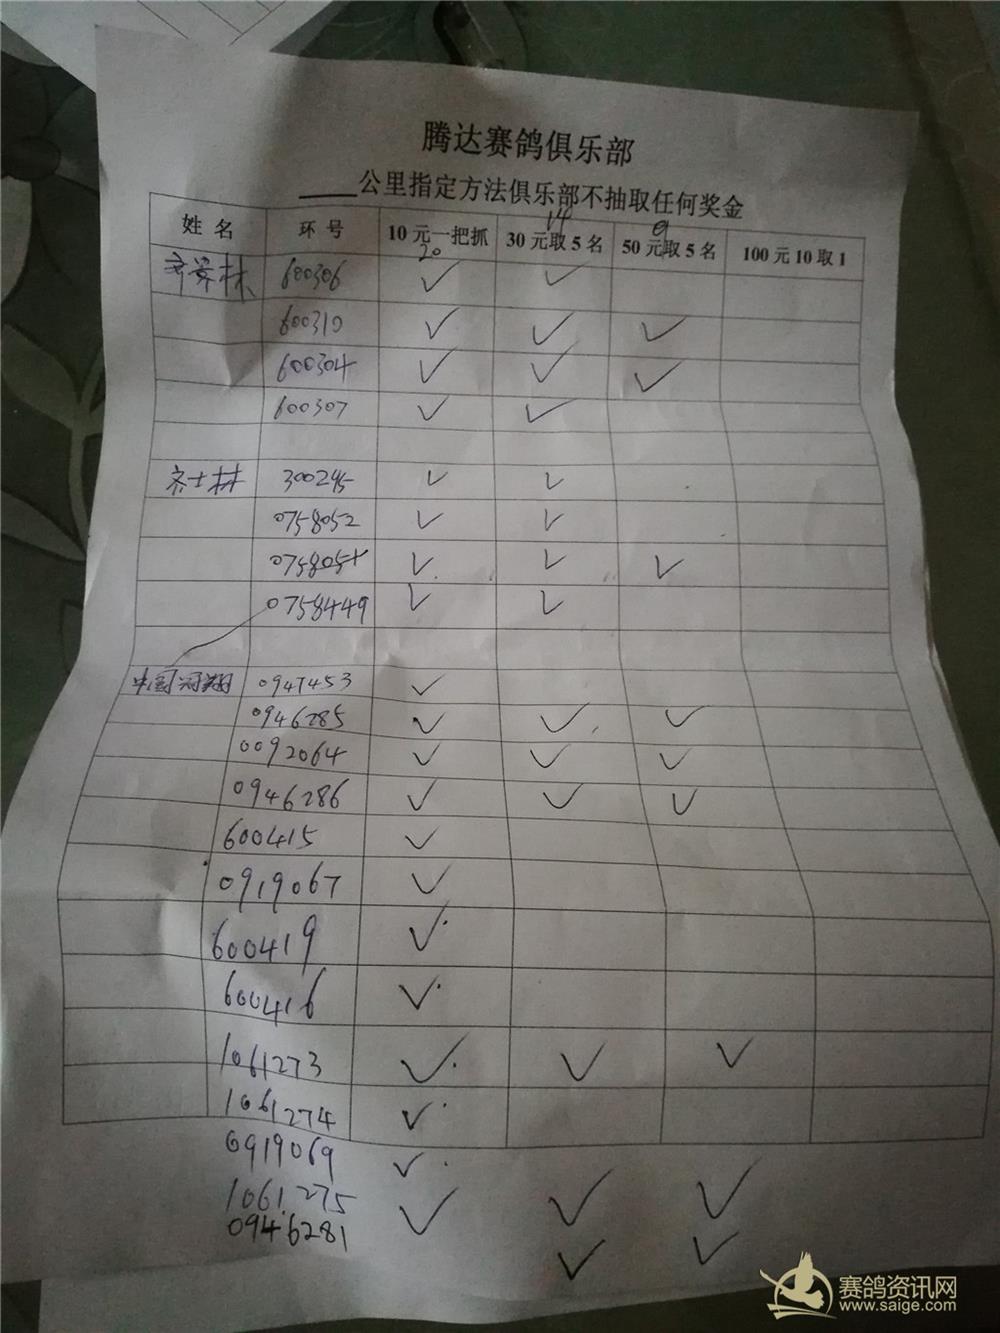 腾达赛鸽俱乐部
____公里指定方法俱乐部不抽取任何奖金
姓名 环号 10元一把抓 30元取5名 50元取5名 100元10取1
20 14 9
齐景林 600306 ✓ ✓
600310 ✓ ✓ ✓
600304 ✓ ✓ ✓
600307 ✓ ✓
齐士林 300295 ✓ ✓
0758052 ✓ ✓
✓ ✓ ✓
0758449 ✓ ✓
中国 0947453 ✓
0946285 ✓ ✓ ✓
0092064 ✓ ✓ ✓
0946286 ✓ ✓ ✓
600415 ✓
0919067 ✓
600419 ✓
600416 ✓
1061273 ✓ ✓ ✓
1061274 ✓
0919069 ✓
1061275 ✓ ✓ ✓
0946281 ✓ ✓
赛鸽资讯网
www.saige.com